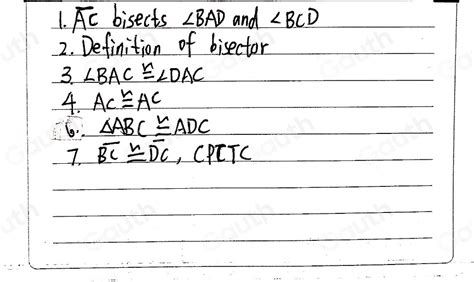 1. AC bisects ∠BAD and ∠BCD
2. Definition of bisector
3. ∠BAC ≅ ∠DAC
4. AC ≅ AC
6. ΔABC ≅ ADC
7. BC ≅ DC, CPCTC